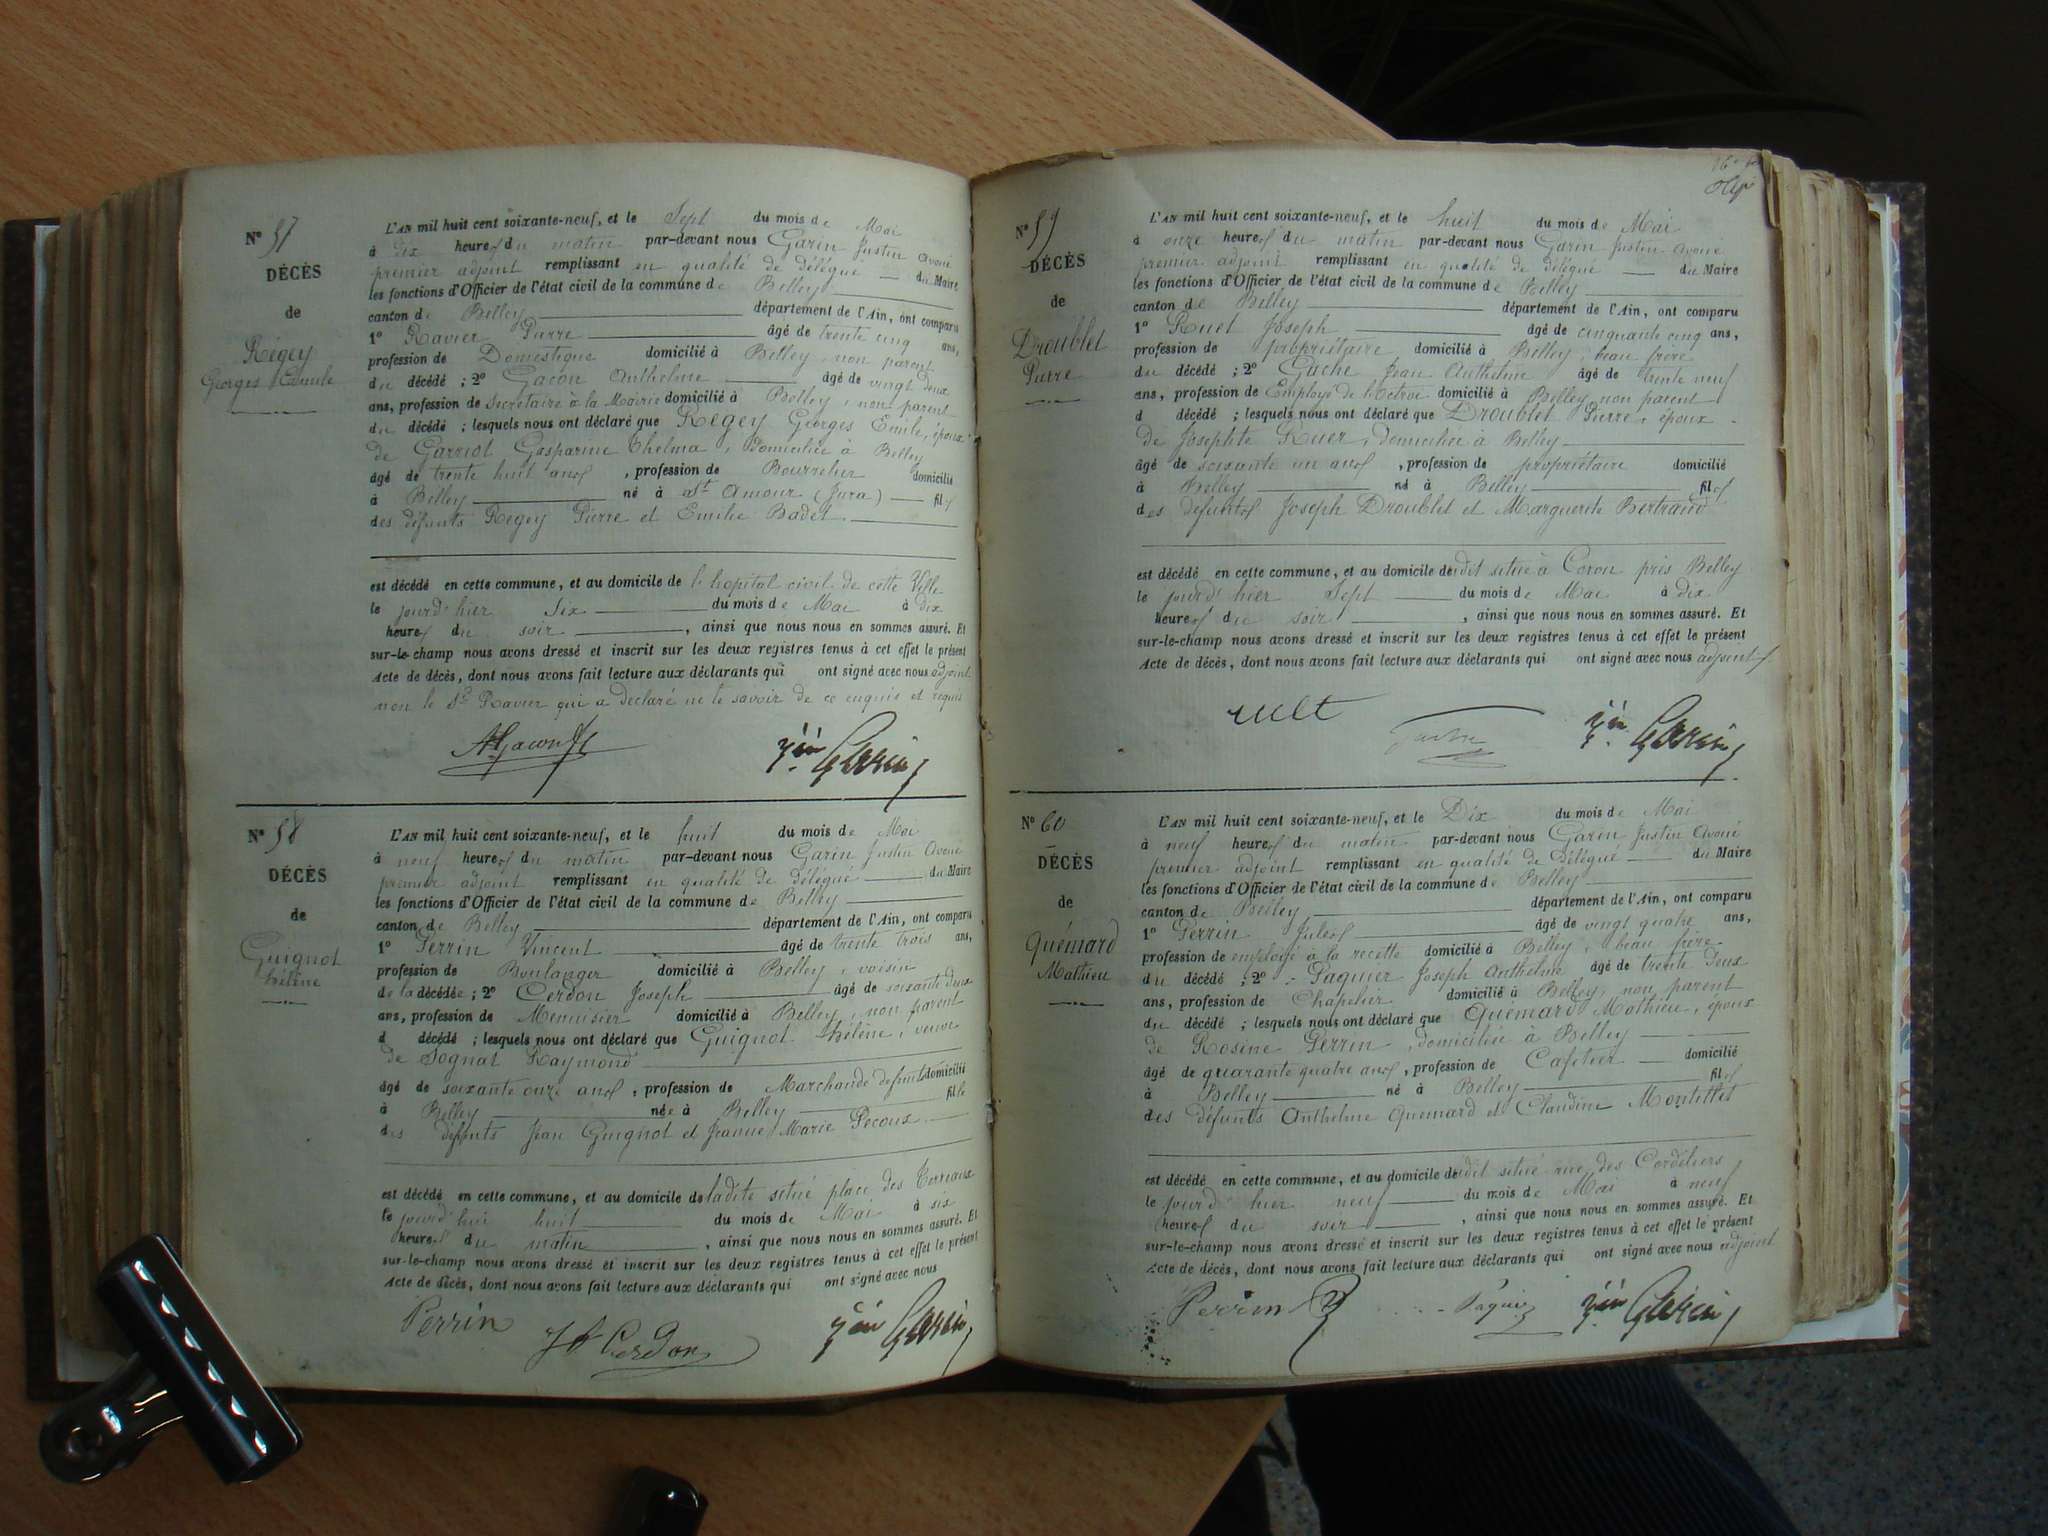 N° 57
DÉCÈS
de
Régey
Georges Emile
L'AN mil huit cent soixante-neuf, et le Sept du mois de Mai
à dix heures du matin par-devant nous Garin Justin avoué
premier adjoint remplissant en qualité de délégué du Maire
les fonctions d'Officier de l'état civil de la commune de Belley
canton de Belley département de l'Ain, ont comparu
1° Ravier Pierre âgé de trente cinq ans,
profession de Domestique domicilié à Belley, non parent
du décédé ; 2° Gacon Anthelme âgé de vingt deux
ans, profession de Secrétaire à la Mairie domicilié à Belley, non parent
du décédé ; lesquels nous ont déclaré que Régey Georges Emile, époux
de Garriot Gasparine Thelma, domiciliée à Belley
âgé de trente huit ans, profession de Bourrelier domicilié
à Belley né à St Amour (Jura) fils
des défunts Régey Pierre et Emilie Badet
est décédé en cette commune, et au domicile de l'hopital civil de cette Ville
le jourd'hier six du mois de Mai à dix
heures du soir, ainsi que nous nous en sommes assuré. Et
sur-le-champ nous avons dressé et inscrit sur les deux registres tenus à cet effet le présent
Acte de décès, dont nous avons fait lecture aux déclarants qui ont signé avec nous adjoint
non le Sr Ravier qui a déclaré ne le savoir de ce enquis et requis
AGacon
Garin
N° 58
DÉCÈS
de
Guignot
hélène
L'AN mil huit cent soixante-neuf, et le huit du mois de Mai
à neuf heures du matin par-devant nous Garin Justin avoué
premier adjoint remplissant en qualité de délégué du Maire
les fonctions d'Officier de l'état civil de la commune de Belley
canton de Belley département de l'Ain, ont comparu
1° Perrin Vincent âgé de trente trois ans,
profession de Boulanger domicilié à Belley, voisin
de la décédée ; 2° Cerdon Joseph âgé de soixante deux
ans, profession de Menuisier domicilié à Belley, non parent
d décédé ; lesquels nous ont déclaré que Guignot hélène, veuve
de Sognat Raymond
âgé de soixante onze ans, profession de Marchande domicilié
à Belley née à Belley fille
des défunts Jean Guignot et Jeanne Marie Pecoux
est décédé en cette commune, et au domicile de ladite situé place des Terreaux
le jourd'hui huit du mois de Mai à six
heures du matin, ainsi que nous nous en sommes assuré. Et
sur-le-champ nous avons dressé et inscrit sur les deux registres tenus à cet effet le présent
Acte de décès, dont nous avons fait lecture aux déclarants qui ont signé avec nous
Perrin
Jh Cerdon
Garin
N° 59
DÉCÈS
de
Droublet
Pierre
L'AN mil huit cent soixante-neuf, et le huit du mois de Mai
à onze heures du matin par-devant nous Garin Justin avoué
premier adjoint remplissant en qualité de délégué du Maire
les fonctions d'Officier de l'état civil de la commune de Belley
canton de Belley département de l'Ain, ont comparu
1° Ruet Joseph âgé de cinquante cinq ans,
profession de propriétaire domicilié à Belley, beau frère
du décédé ; 2° Gache Jean Anthelme âgé de trente neuf
ans, profession de Employé de l'Octroi domicilié à Belley non parent
d décédé ; lesquels nous ont déclaré que Droublet Pierre, époux
de Josephte Ruet, domiciliée à Belley
âgé de soixante un ans, profession de propriétaire domicilié
à Belley né à Belley fils
des défunts Joseph Droublet et Marguerite Bertrand
est décédé en cette commune, et au domicile dudit situé à Coron près Belley
le jourd'hier sept du mois de Mai à dix
heures du soir, ainsi que nous nous en sommes assuré. Et
sur-le-champ nous avons dressé et inscrit sur les deux registres tenus à cet effet le présent
Acte de décès, dont nous avons fait lecture aux déclarants qui ont signé avec nous adjoint
Garin
N° 60
DÉCÈS
de
Quémard
Mathieu
L'AN mil huit cent soixante-neuf, et le Dix du mois de Mai
à neuf heures du matin par-devant nous Garin Justin avoué
premier adjoint remplissant en qualité de délégué du Maire
les fonctions d'Officier de l'état civil de la commune de Belley
canton de Belley département de l'Ain, ont comparu
1° Perrin Jules âgé de vingt quatre ans,
profession de employé à la recette domicilié à Belley, beau frère
du décédé ; 2° Paquier Joseph Anthelme âgé de trente deux
ans, profession de Chapelier domicilié à Belley, non parent
du décédé ; lesquels nous ont déclaré que Quémard Mathieu, époux
de Rosine Perrin, domiciliée à Belley
âgé de quarante quatre ans, profession de Cafetier domicilié
à Belley né à Belley fils
des défunts Anthelme Quémard et Claudine Montillet
est décédé en cette commune, et au domicile dudit situé rue des Cordeliers
le jourd'hier neuf du mois de Mai à neuf
heures du soir, ainsi que nous nous en sommes assuré. Et
sur-le-champ nous avons dressé et inscrit sur les deux registres tenus à cet effet le présent
Acte de décès, dont nous avons fait lecture aux déclarants qui ont signé avec nous adjoint
Perrin
Paquier
Garin